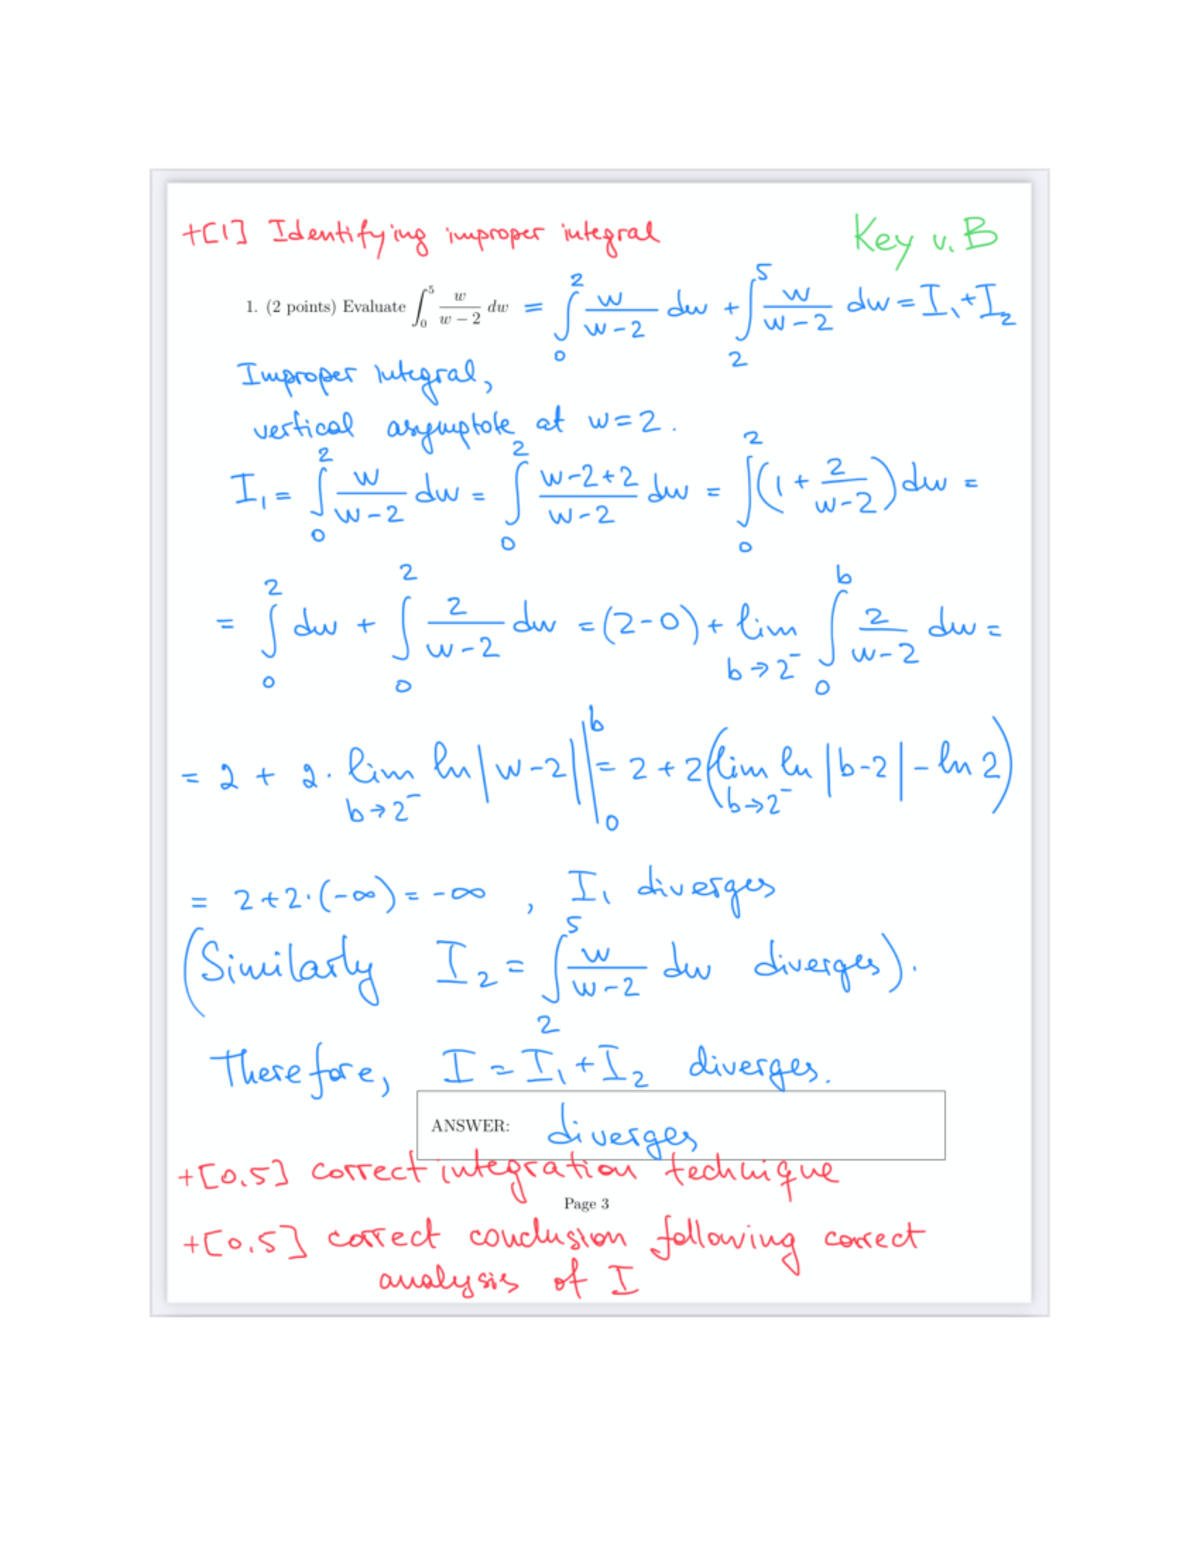 +[1] Identifying improper integral
Key v. B
1. (2 points) Evaluate ∫_0^5 w/(w − 2) dw = ∫_0^2 w/(w−2) dw + ∫_2^5 w/(w−2) dw = I₁+I₂
Improper integral,
vertical asymptote at w=2.
I₁ = ∫_0^2 w/(w−2) dw = ∫_0^2 (w−2+2)/(w−2) dw = ∫_0^2 (1 + 2/(w−2)) dw =
= ∫_0^2 dw + ∫_0^2 2/(w−2) dw = (2−0) + lim_{b→2⁻} ∫_0^b 2/(w−2) dw =
= 2 + 2· lim_{b→2⁻} ln|w−2| |_0^b = 2 + 2(lim_{b→2⁻} ln|b−2| − ln 2)
= 2+2·(−∞) = −∞ , I₁ diverges
(Similarly I₂ = ∫_2^5 w/(w−2) dw diverges).
Therefore, I = I₁+I₂ diverges.
ANSWER: diverges
+[0.5] correct integration technique
Page 3
+[0.5] correct conclusion following correct
analysis of I